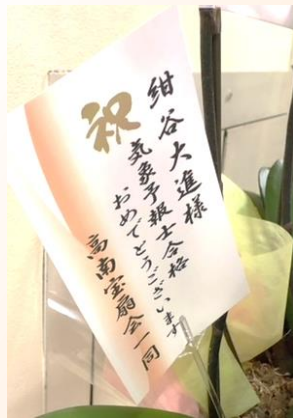 祝
紺谷大進様
気象予報士合格
おめでとうございます
高南宝扇会一同